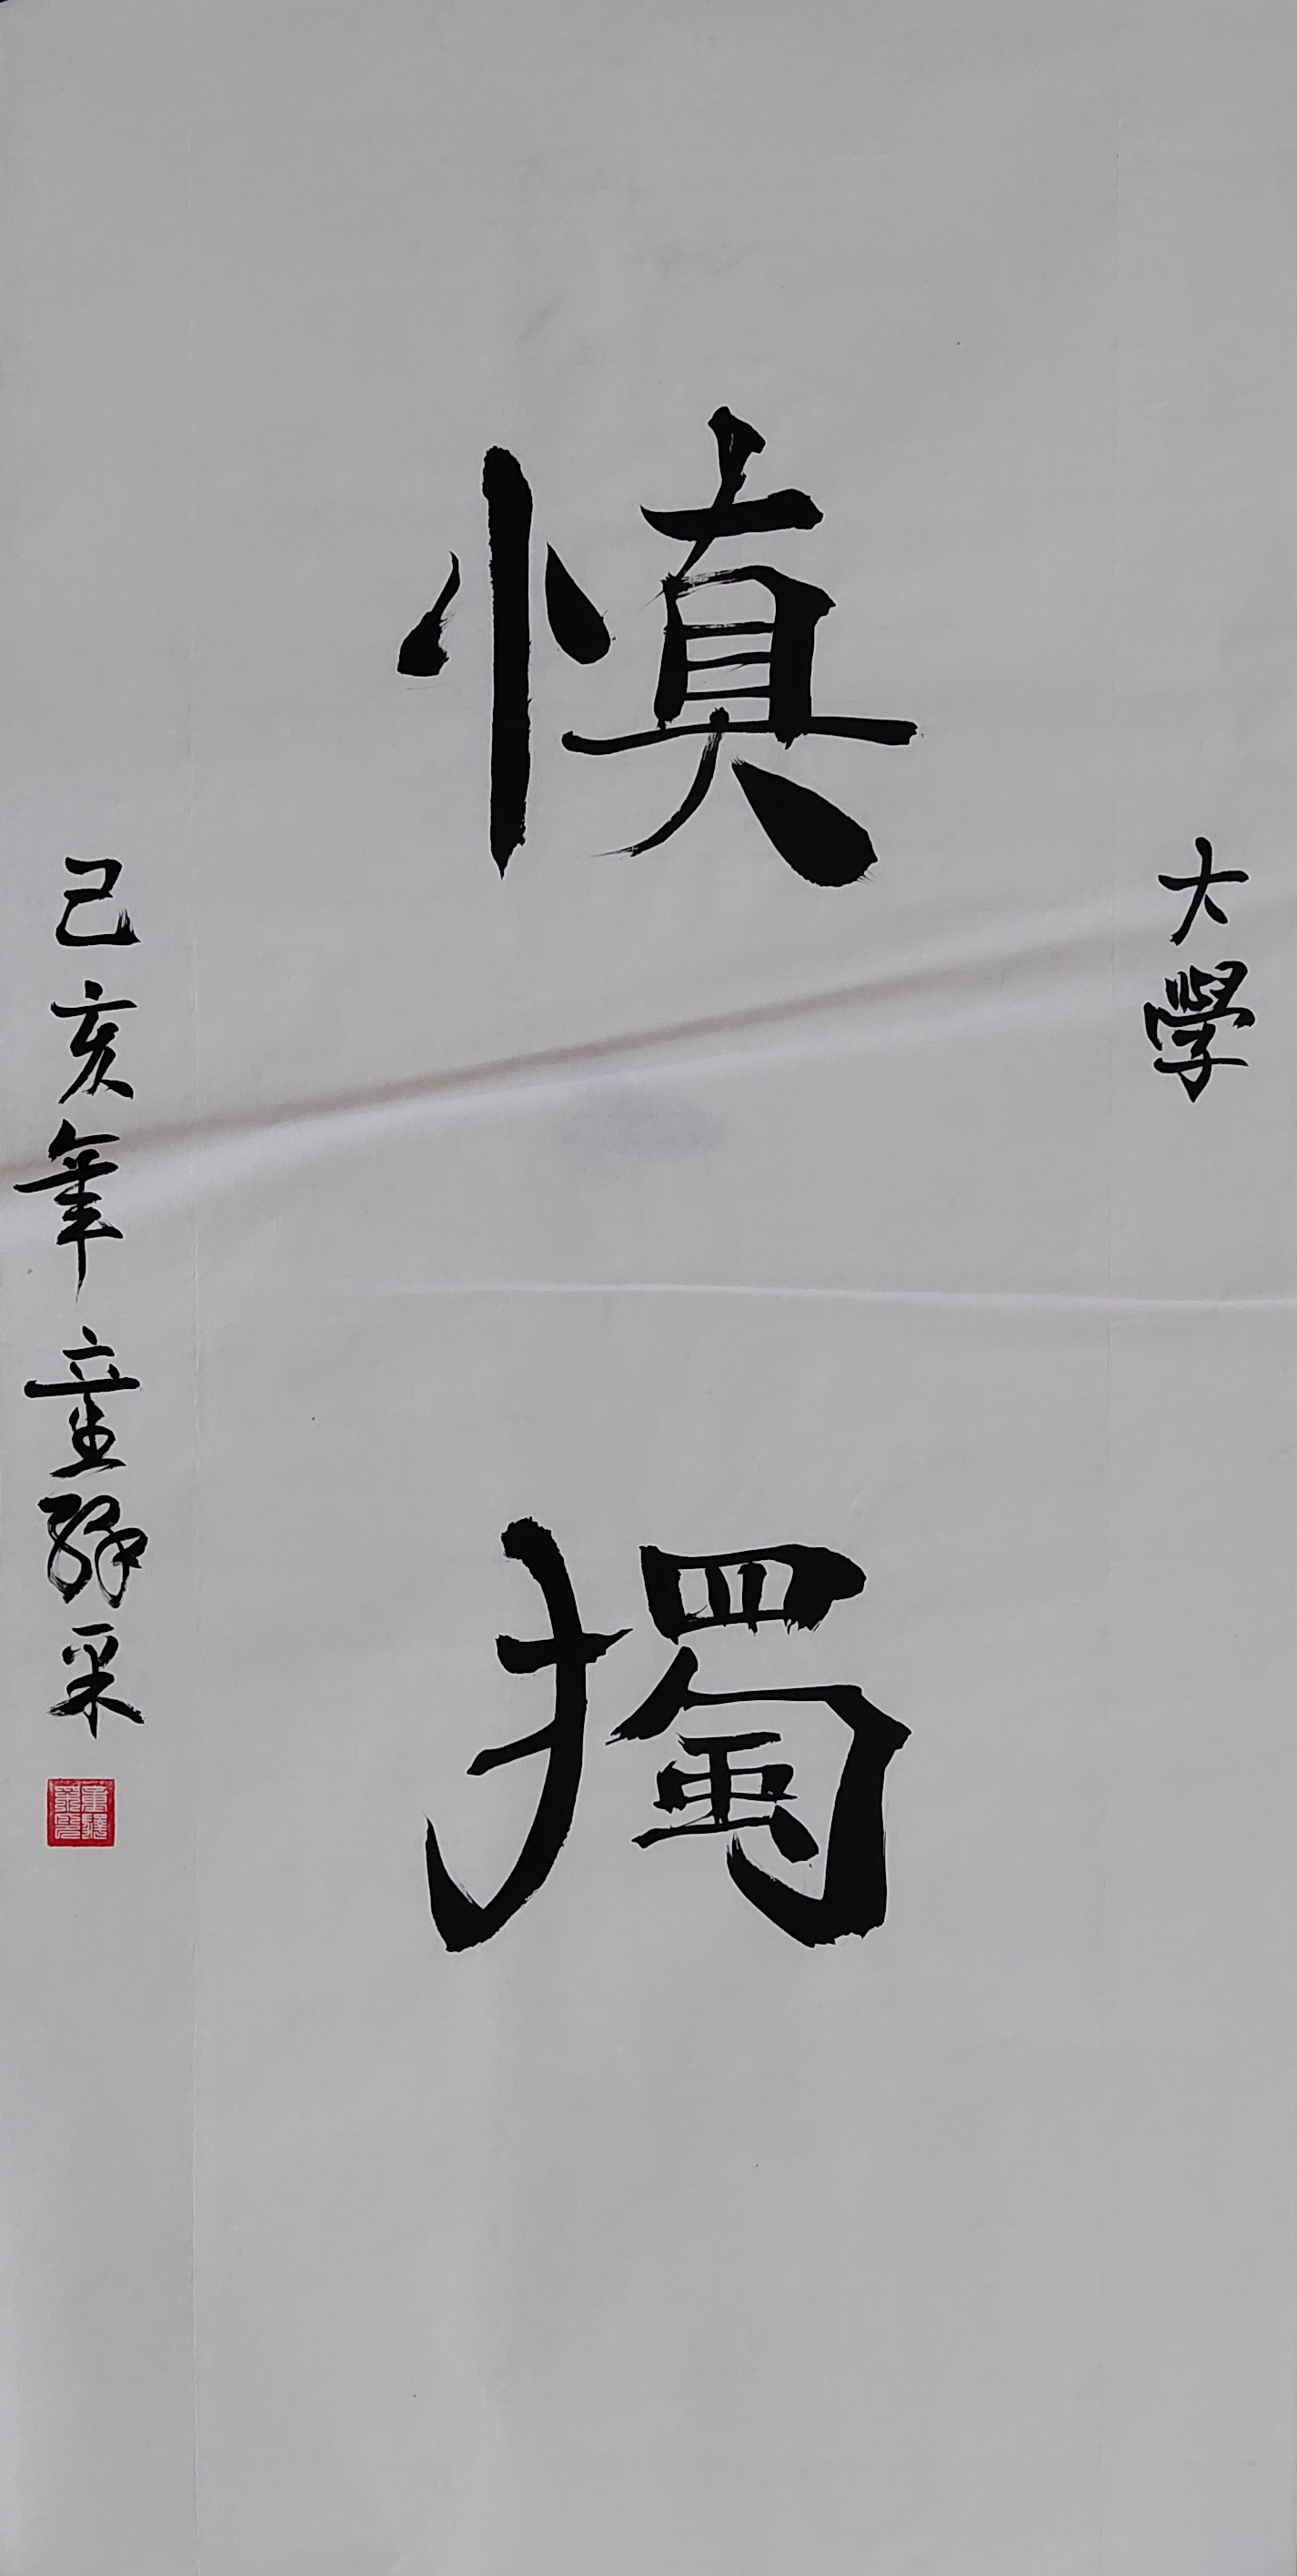 大學
慎
獨
己亥年 童繹采